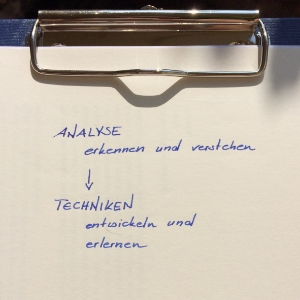 ANALYSE
erkennen und verstehen
↓
TECHNIKEN
entwickeln und
erlernen